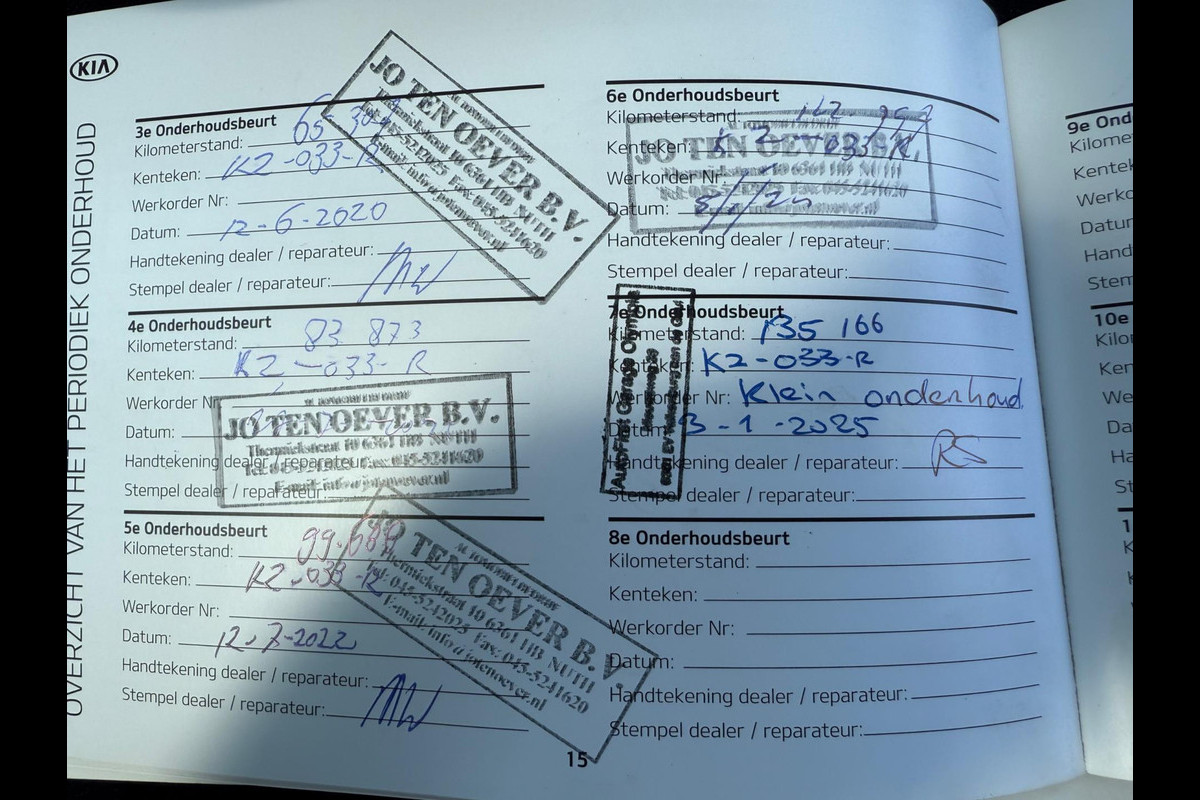 KIA
OVERZICHT VAN HET PERIODIEK ONDERHOUD
3e Onderhoudsbeurt
Kilometerstand: 65
Kenteken: K2-033-R
Werkorder Nr:
Datum: 12-6-2020
Handtekening dealer / reparateur:
Stempel dealer / reparateur:
JO TEN OEVER B.V.
Thermiekstraat 10 6361 HB NUTH
Tel: 045-5242025 Fax: 045-5241620
E-mail: info@jotenoever.nl
4e Onderhoudsbeurt
Kilometerstand: 83 873
Kenteken: K2-033-R
Werkorder Nr
Datum:
Handtekening dealer / reparateur:
Stempel dealer / reparateur:
JO TEN OEVER B.V.
Thermiekstraat 10 6361 HB NUTH
Tel: 045-5242025 Fax: 045-5241620
E-mail: info@jotenoever.nl
5e Onderhoudsbeurt
Kilometerstand: 99.688
Kenteken: K2-033-R
Werkorder Nr:
Datum: 12-7-2022
Handtekening dealer / reparateur:
Stempel dealer / reparateur:
JO TEN OEVER B.V.
Thermiekstraat 10 6361 HB NUTH
Tel: 045-5242025 Fax: 045-5241620
E-mail: info@jotenoever.nl
6e Onderhoudsbeurt
Kilometerstand:
Kenteken: K2-033-R
Werkorder Nr
Datum:
Handtekening dealer / reparateur:
Stempel dealer / reparateur:
JO TEN OEVER B.V.
Thermiekstraat 10 6361 HB NUTH
Tel: 045-5242025 Fax: 045-5241620
7e Onderhoudsbeurt
Kilometerstand: 135 166
Kenteken: K2-033-R
Werkorder Nr: Klein onderhoud
Datum: 3-1-2025
Handtekening dealer / reparateur: RS
Stempel dealer / reparateur:
AutoFirst Garage Olympia
8e Onderhoudsbeurt
Kilometerstand:
Kenteken:
Werkorder Nr:
Datum:
Handtekening dealer / reparateur:
Stempel dealer / reparateur:
15
9e Ond
Kilome
Kentek
Werko
Datur
Hand
Stem
10e
Kilo
Ken
We
Da
Ha
St